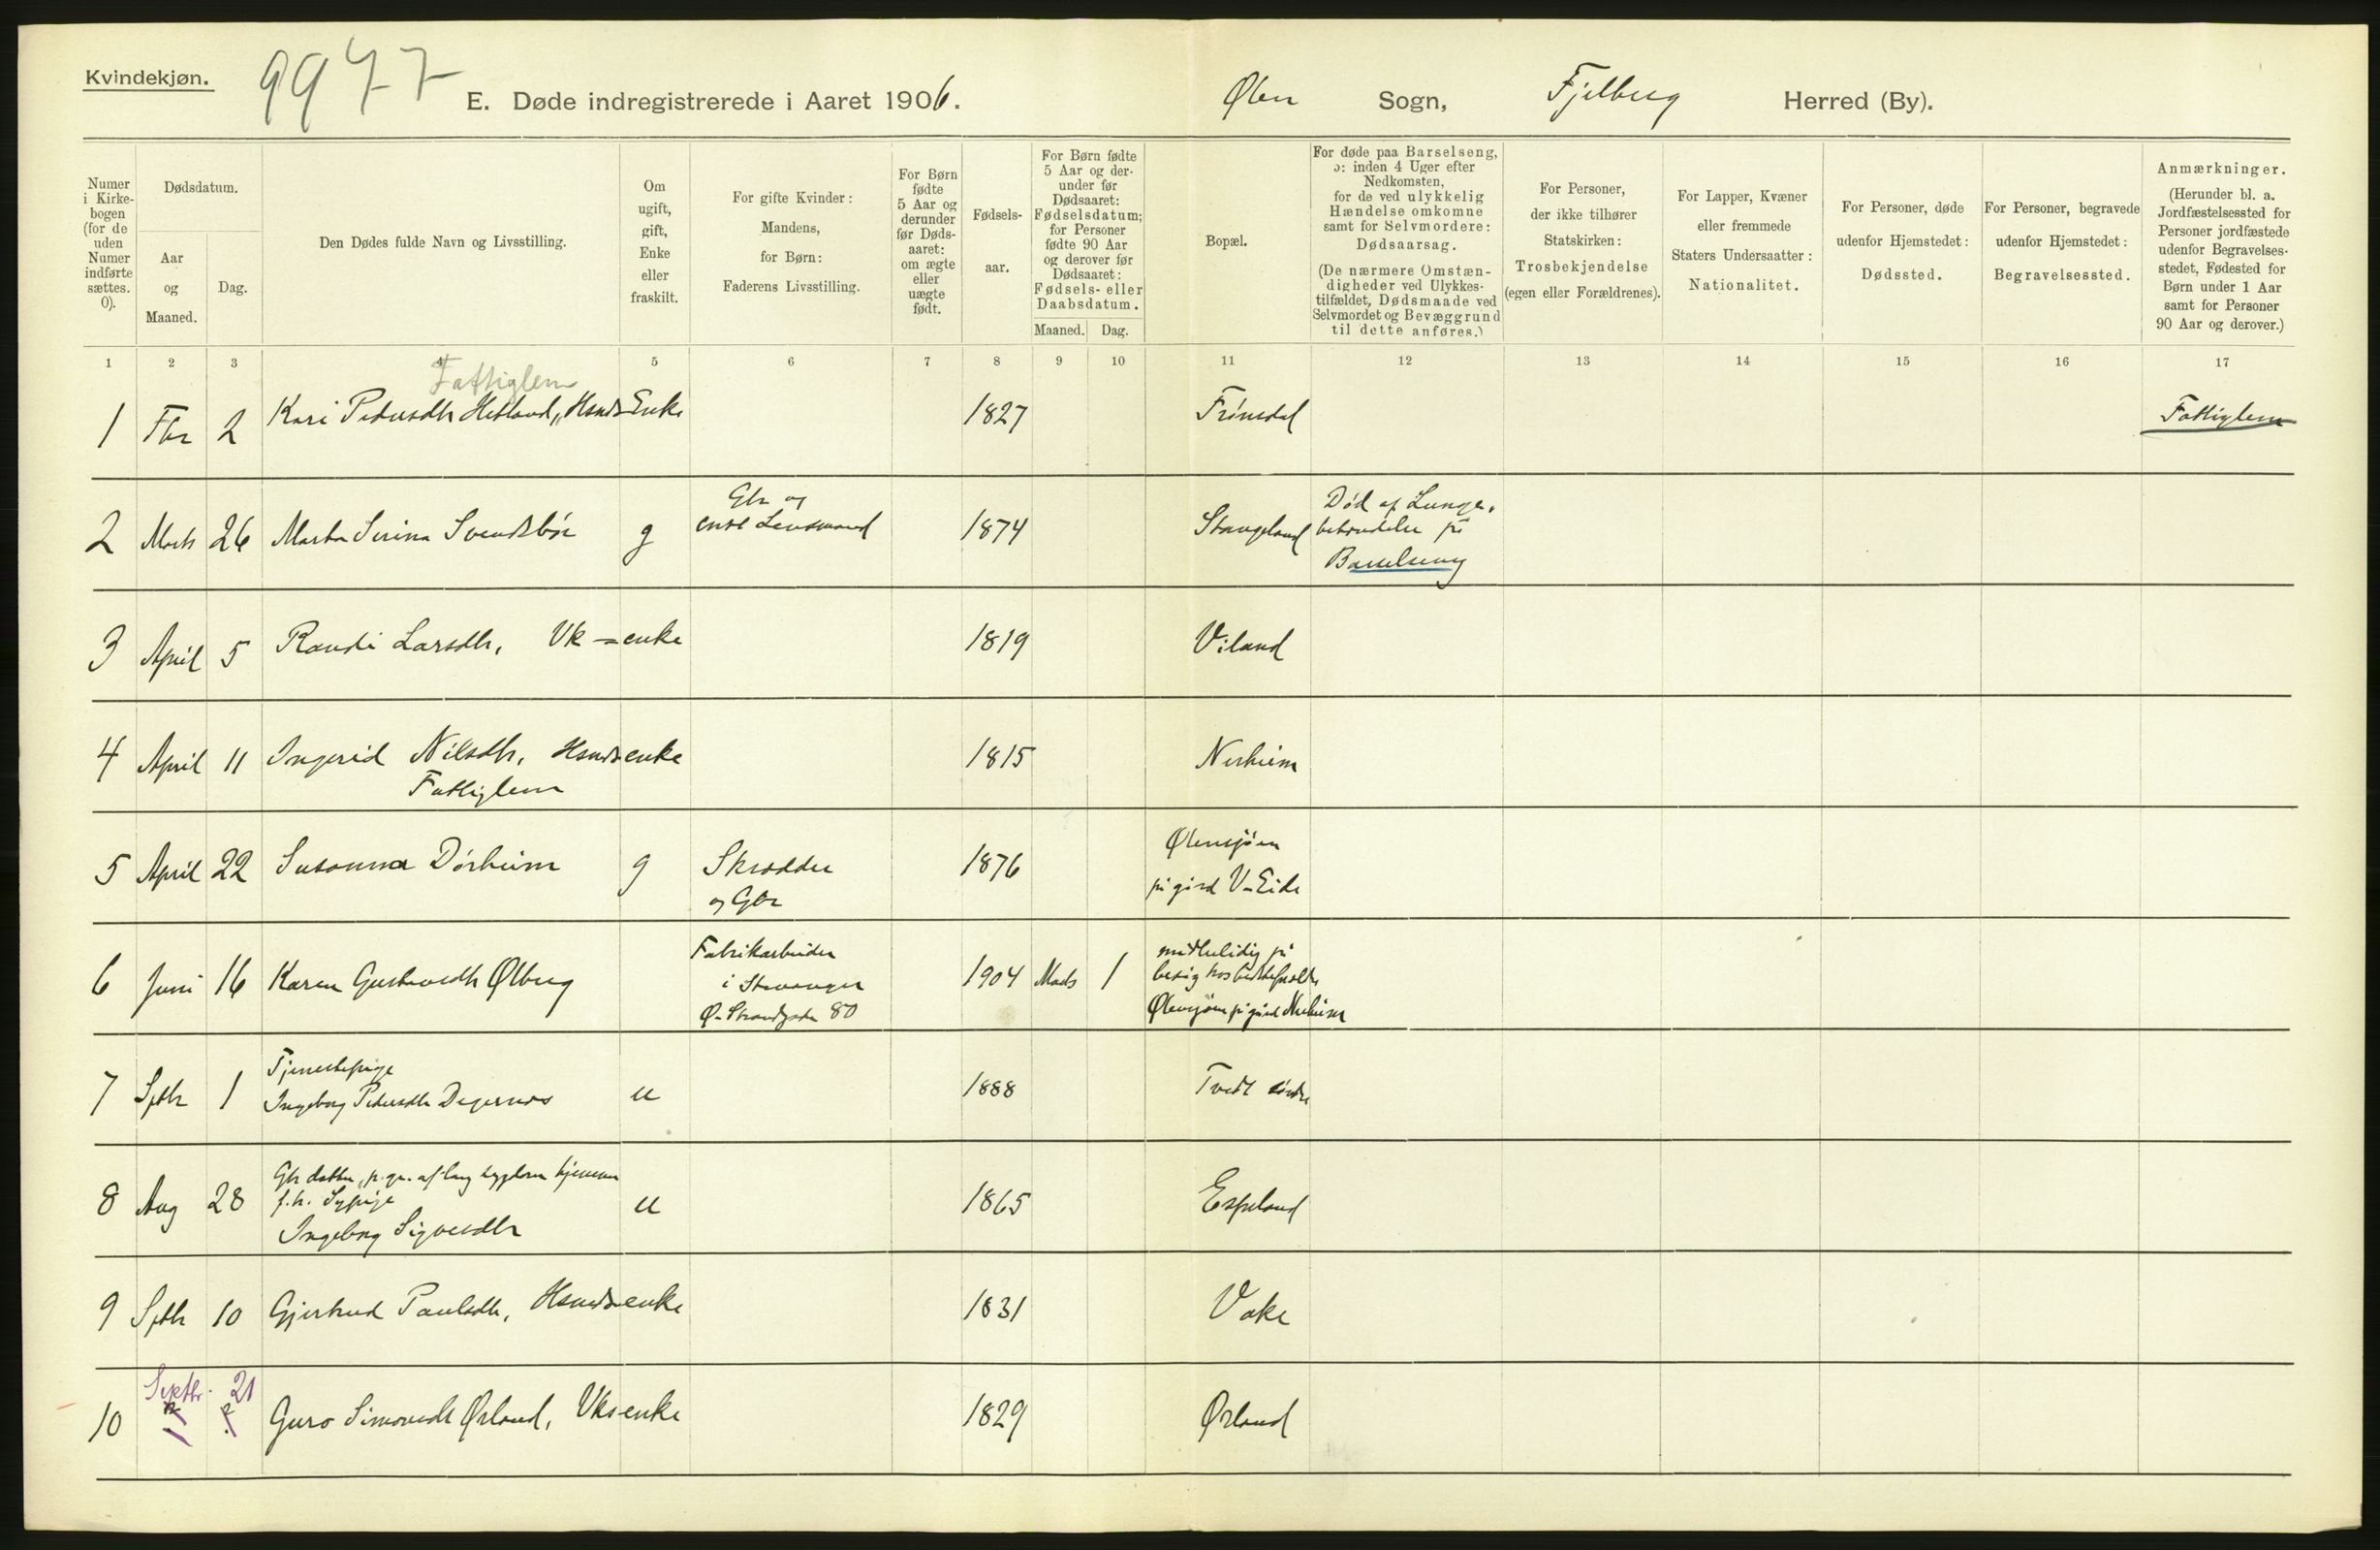 Kvindekjøn.
9977
E. Døde indregistrerede i Aaret 1906.
Ølen Sogn, Fjelberg Herred (By).
Numer i Kirkebogen (for de uden Numer indførte sættes. 0).
Dødsdatum.
Aar og Maaned.
Dag.
Den Dødes fulde Navn og Livsstilling.
Om ugift, gift, Enke eller fraskilt.
For gifte Kvinder: Mandens, for Børn: Faderens Livsstilling.
For Børn fødte 5 Aar og derunder før Dødsaaret: om ægte eller uægte født.
Fødselsaar.
For Børn fødte 5 Aar og derunder før Dødsaaret: Fødselsdatum; for Personer fødte 90 Aar og derover før Dødsaaret: Fødsels- eller Daabsdatum.
Maaned. Dag.
Bopæl.
For døde paa Barselseng, ɔ: inden 4 Uger efter Nedkomsten, for de ved ulykkelig Hændelse omkomne samt for Selvmordere: Dødsaarsag.
(De nærmere Omstændigheder ved Ulykkestilfældet, Dødsmaade ved Selvmordet og Bevæggrund til dette anføres.)
For Personer, der ikke tilhører Statskirken: Trosbekjendelse (egen eller Forældrenes).
For Lapper, Kvæner eller fremmede Staters Undersaatter: Nationalitet.
For Personer, døde udenfor Hjemstedet: Dødssted.
For Personer, begravede udenfor Hjemstedet: Begravelsessted.
Anmærkninger.
(Herunder bl. a. Jordfæstelsessted for Personer jordfæstede udenfor Begravelsesstedet, Fødested for Børn under 1 Aar samt for Personer 90 Aar og derover.)
1 2 3 4 5 6 7 8 9 10 11 12 13 14 15 16 17
Fattiglem
1 Fbr 2 Kari Pedersdtr Hetland, Hsmds Enke 1827 Frønsdal Fattiglem
2 Marts 26 Marta Serina Svendsbøe g Gbr og
Lensmand 1874 Stangeland Død af Lunge-
betændelse på
Barselseng
3 April 5 Randi Larsdtr, Vk - enke 1819 Viland
4 April 11 Ingerid Nilsdtr, Hsmdsenke 1815 Nerheim
Fattiglem
5 April 22 Susanna Dørheim g Skrædder
og Gbr 1876 Ølensjøen
på gård V-Eide
6 Juni 16 Karen Gustavsdtr Ølberg Fabrikarbeider
i Stavanger
Ø. Strandgaden 80 1904 Marts 1 midlertidig på
besøg hos bedsteforældre
Ølensjøen på gård Nerheim
7 Sptbr 1 Tjenestepige
Ingeborg Pedersdtr Degernes u 1888 Tvedt søndre
8 Aug 28 Gbr datter, p. gr. af lang sygdom hjemme
f.h. Sypige
Ingeborg Sigversdtr u 1865 Espeland
9 Sptbr 10 Gjertrud Paulsdtr, Hsmdsenke 1831 Vake
Septbr. 21
10 Guro Simonsdtr Ørland, Vksenke 1829 Ørland